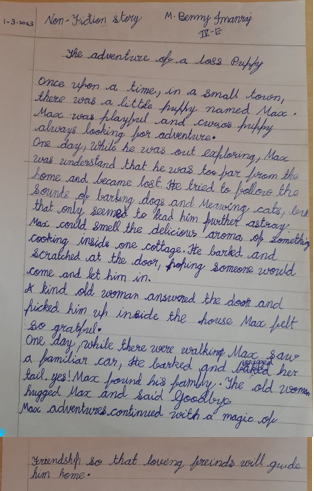 1-3-2023 Non-Fiction story M. Benny Imanraj
IV-E
The adventure of a loss Puppy
Once upon a time, in a small town,
there was a little puppy named Max.
Max was playful and cwros puppy
always looking for adventure.
One day, while he was out exploring, Max
was understand that he was too far from the
home and became lost. He tried to follow the
sounte of barking dogs and Merwing cats, but
that only seemed to lead him further astray.
Max could smell the delicious aroma of something
cooking inside one cottage. He barked and
scratched at the door, hoping someone would
come and let him in.
A kind old woman answered the door and
picked him up inside the house Max felt
so grateful.
One day, while there were walking Max saw
a familiar car, He barked and her
tail. yes! Max found his family. The old woman
hugged Max and said Goodbye.
Max adventures continued with a magic of
Friendship so that loveng freinds will guide
him home.